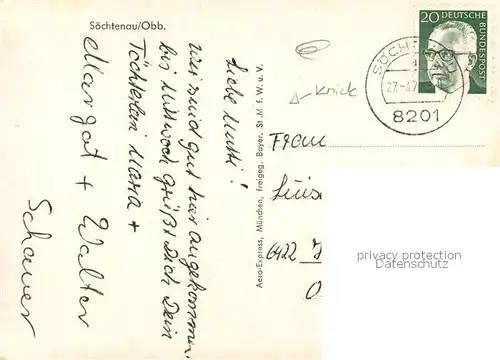 Söchtenau/Obb.
Liebe Mutti!
Wir sind gut hier angekommen.
bis Mittwoch grüßt Dich Dein
Töchterlein Maria +
Margot + Walter
Schauer
Aero-Express, München, Freigeg. Bayer. St. M. f. W. u. V.
20 DEUTSCHE
BUNDESPOST
SÖCH
a
27.-4.7
8201
Knick
Frau
Luise
6422
privacy protection
Datenschutz